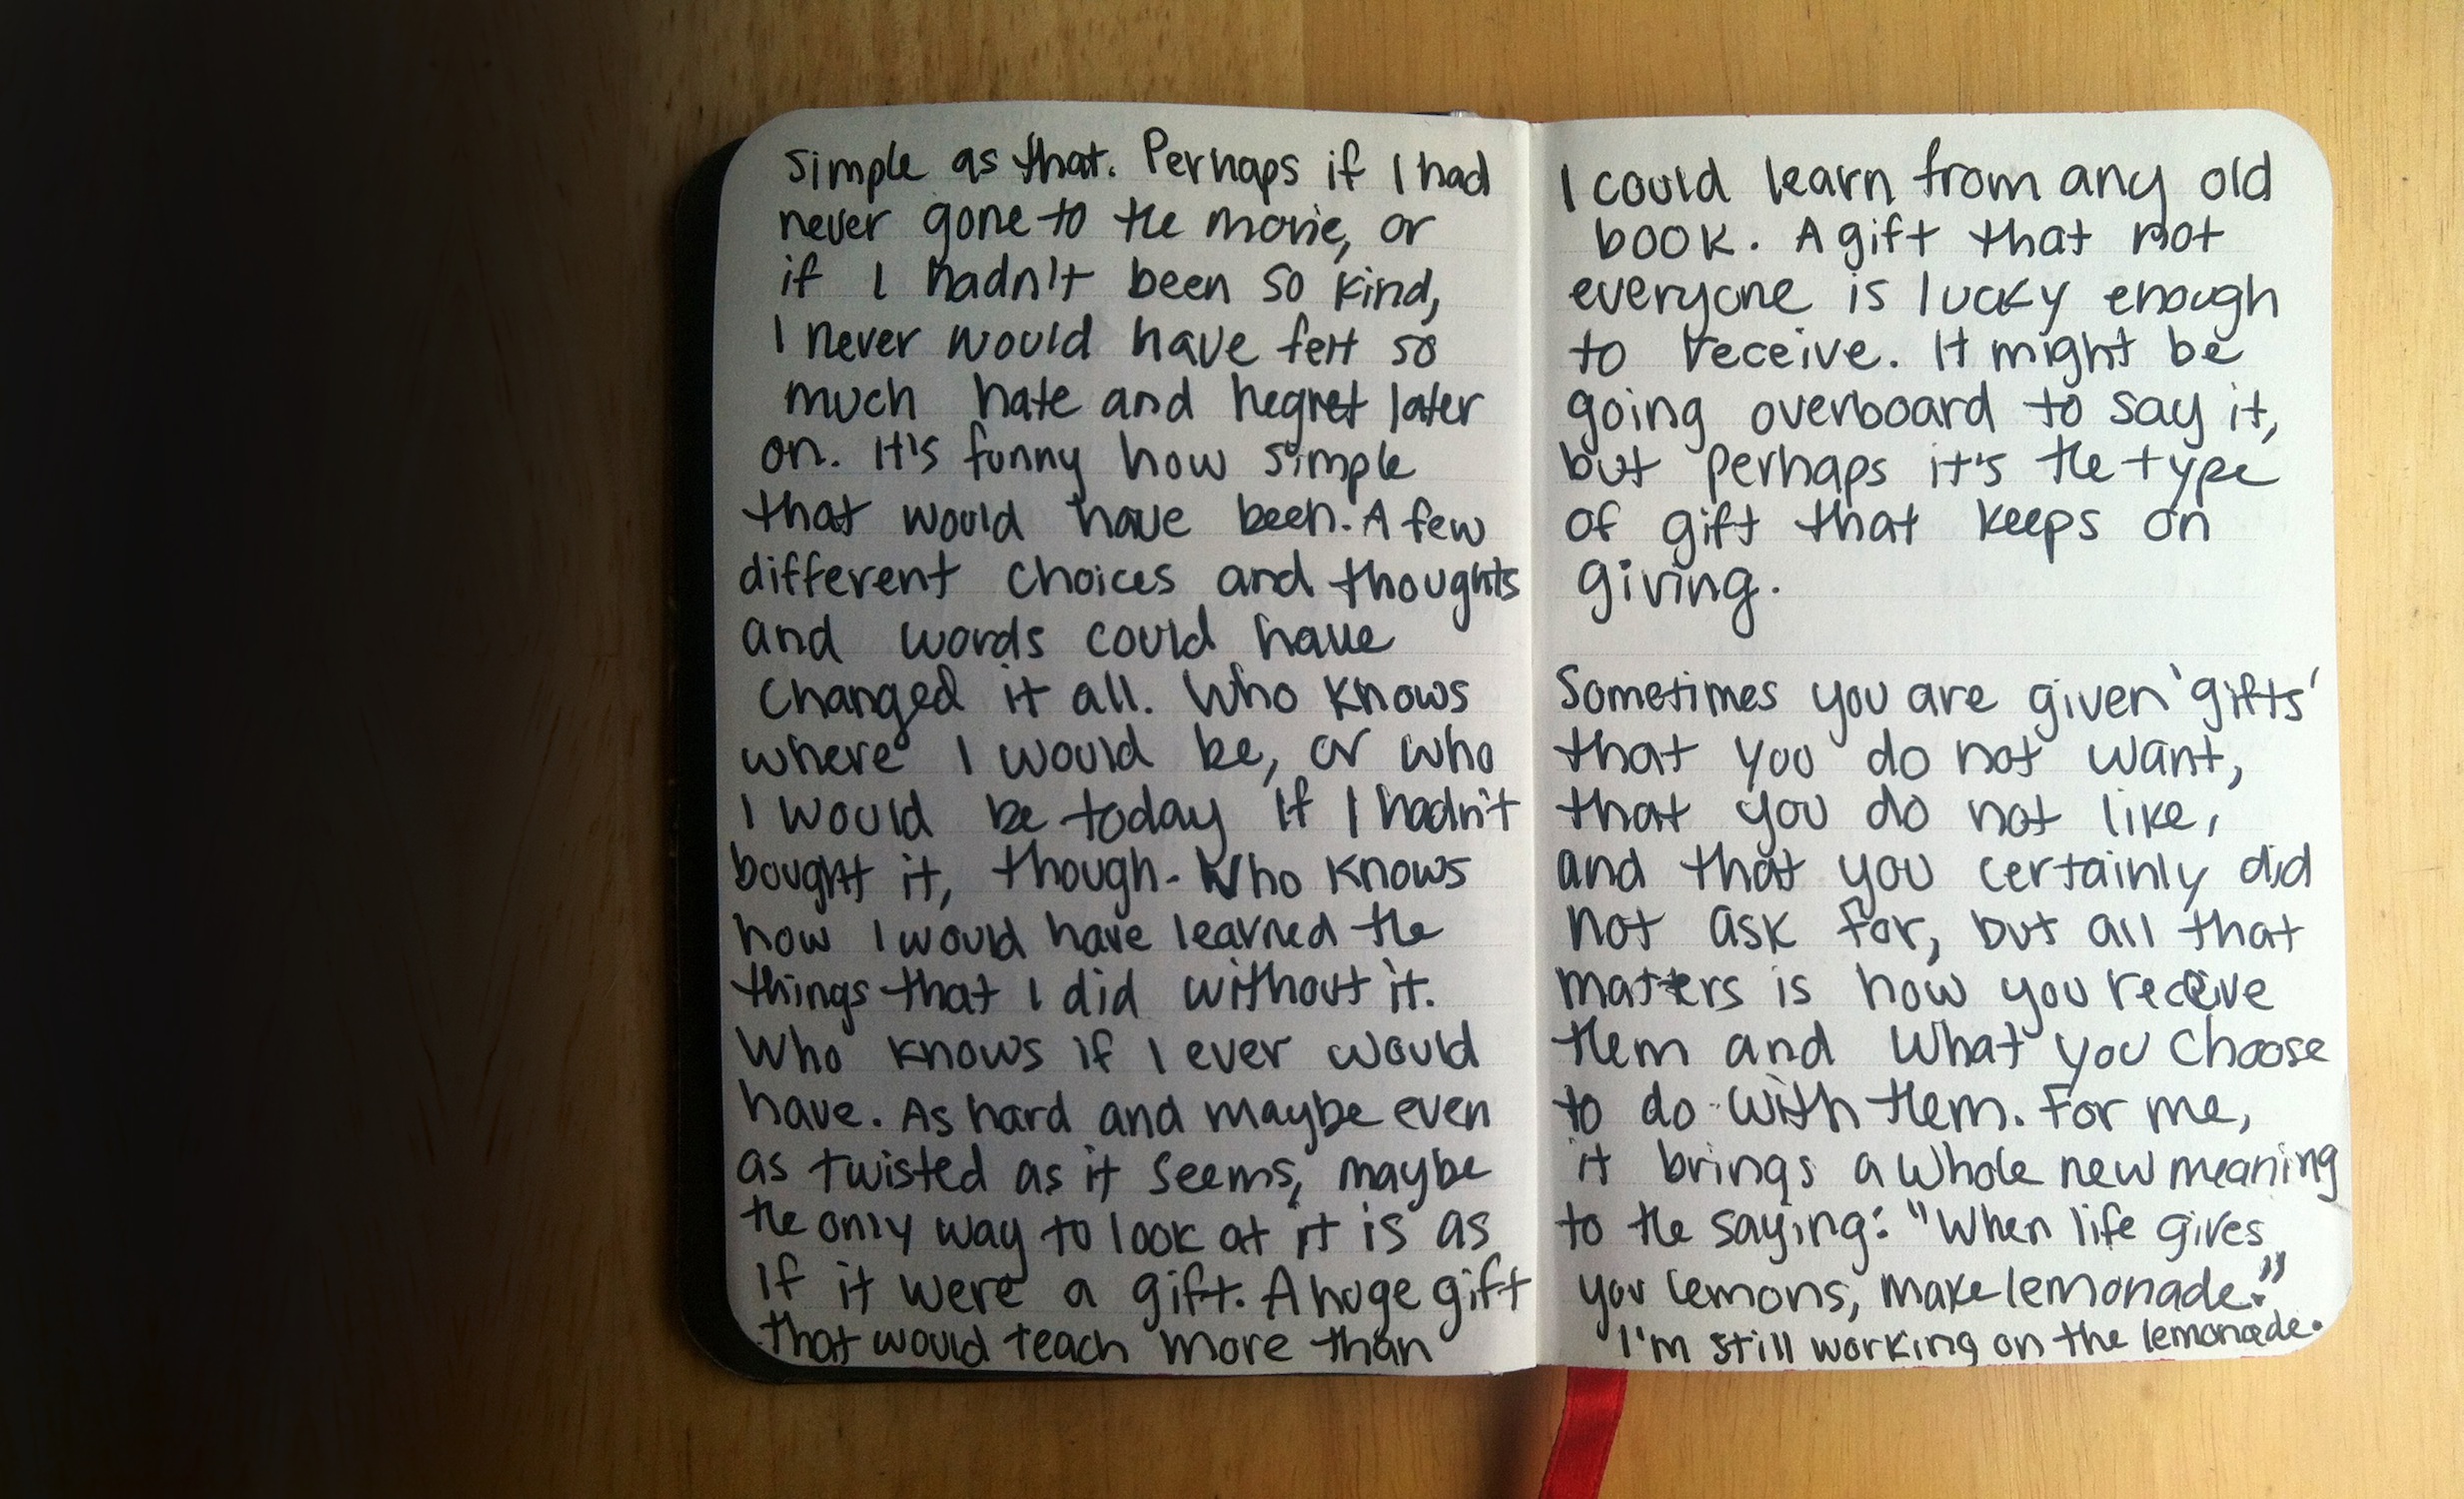 Simple as that. Perhaps if I had
never gone to the movie, or
if I hadn't been so kind,
I never would have felt so
much hate and hegret later
on. It's funny how simple
that would have been. A few
different choices and thoughts
and words could have
changed it all. Who knows
where I would be, or who
I would be today if I hadn't
bought it, though. Who knows
how I would have learned the
things that I did without it.
Who knows if I ever would
have. As hard and maybe even
as twisted as it seems, maybe
the only way to look at it is as
if it were a gift. A huge gift
that would teach more than
I could learn from any old
book. A gift that not
everyone is lucky enough
to receive. It might be
going overboard to say it,
but perhaps it's the type
of gift that keeps on
giving.
Sometimes you are given 'gifts'
that you do not want,
that you do not like,
and that you certainly did
not ask for, but all that
matters is how you receive
them and what you choose
to do with them. For me,
it brings a whole new meaning
to the saying: "When life gives
you lemons, make lemonade."
I'm still working on the lemonade.